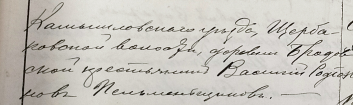 Камышловскаго уѣзда, Щерба-
ковской волости, деревни Бродов-
ской крестьянинъ Василий Родіо-
новъ Пельменщиковъ. —